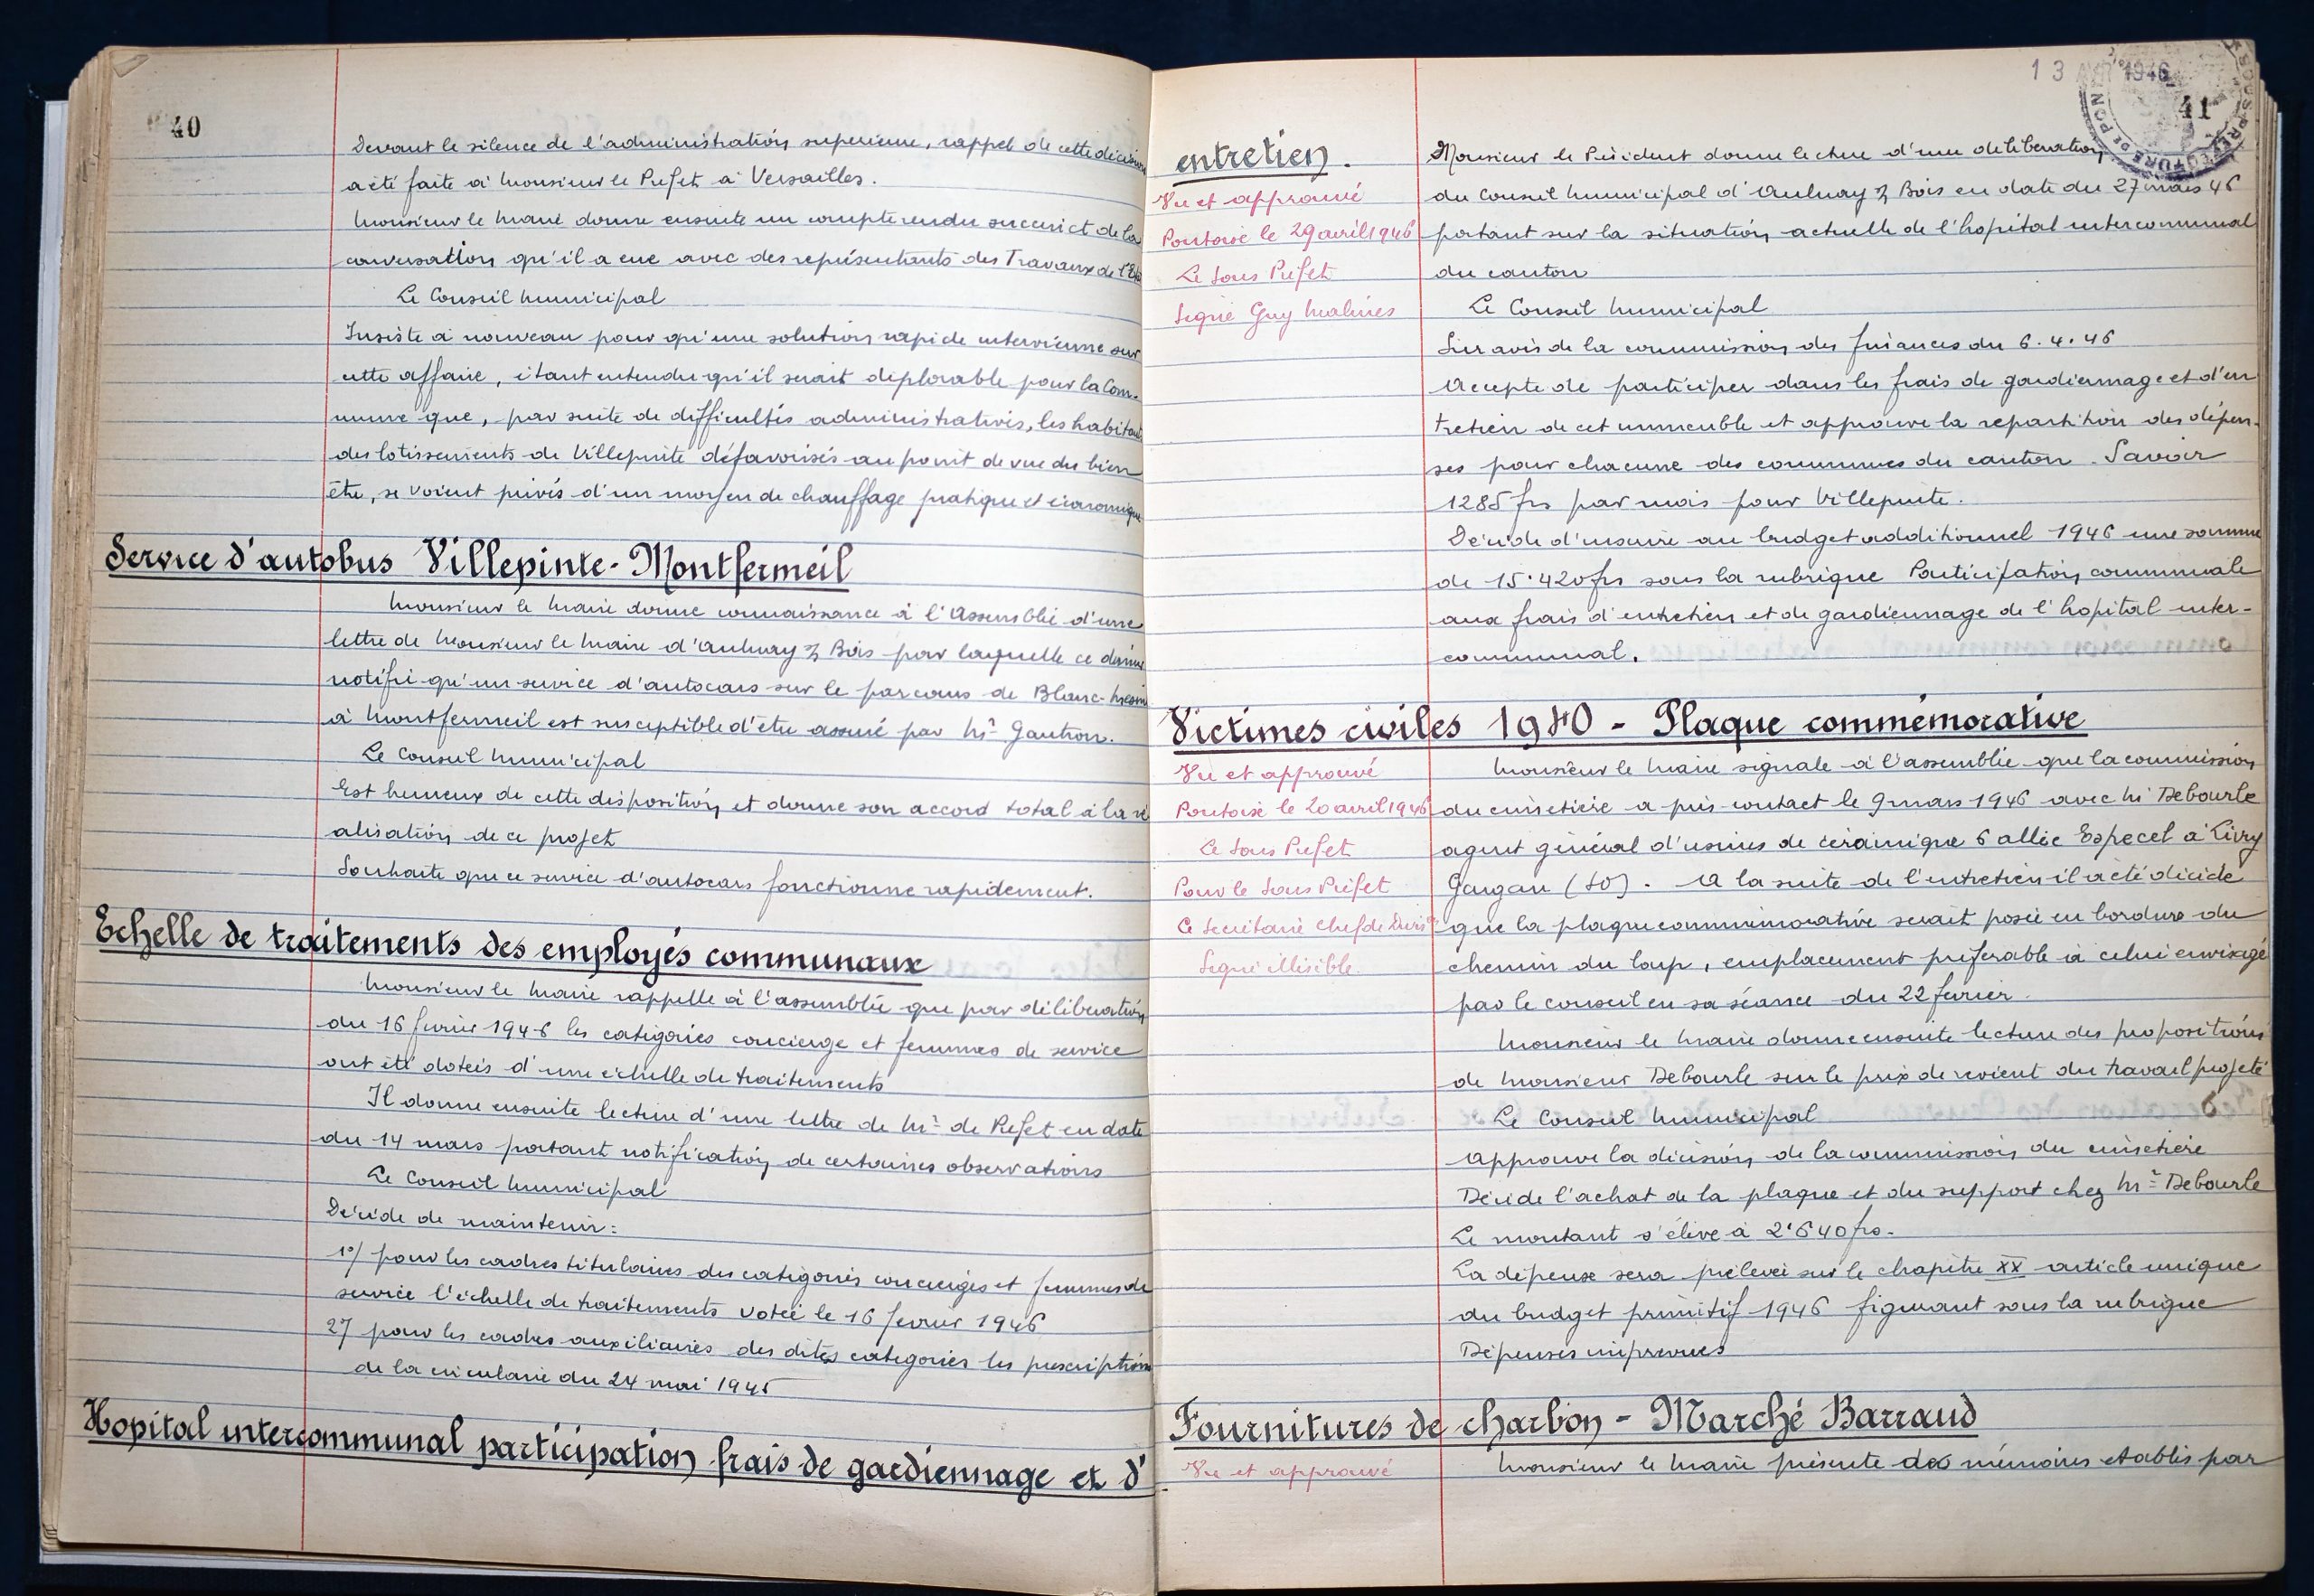 40
Devant le silence de l'administration superieure, rappel de cette décision
a été faite à Monsieur le Prefet à Versailles.
Monsieur le Maire donne ensuite un compte rendu succinct de la
conversation qu'il a eue avec des représentants des Travaux de l'Etat
Le Conseil Municipal
Insiste à nouveau pour qu'une solution rapide intervienne sur
cette affaire, étant entendu qu'il serait déplorable pour la Com-
mune que, par suite de difficultés administratives, les habitants
des lotissements de Villepinte défavorisés au point de vue du bien
être, se voient privés d'un moyen de chauffage pratique et économique
Service d'autobus Villepinte-Montfermeil
Monsieur le Maire donne connaissance à l'Assemblée d'une
lettre de Monsieur le Maire d'Aulnay s/ Bois par laquelle ce dernier
notifie qu'un service d'autocars sur le parcours de Blanc-Mesnil
à Montfermeil est susceptible d'être assuré par Mr Gautron.
Le Conseil Municipal
Est heureux de cette disposition et donne son accord total à la ré
alisation de ce projet
Souhaite que ce service d'autocars fonctionne rapidement.
Echelle de traitements des employés communaux
Monsieur le Maire rappelle à l'assemblée que par délibération
du 16 fevrier 1946 les catégories concierge et femmes de service
ont été dotées d'une échelle de traitements
Il donne ensuite lecture d'une lettre de Mr de Prefet en date
du 14 mars portant notification de certaines observations
Le Conseil Municipal
Décide de maintenir:
1°/ pour les cadres titulaires des catégories concierges et femmes de
service l'échelle de traitements votée le 16 fevrier 1946
2°/ pour les cadres auxiliaires des dites catégories les prescriptions
de la circulaire du 24 mai 1945
Hopital intercommunal participation frais de gardiennage et d'
13 AVR 1946
41
SOUS-PREFECTURE DE PONTOISE
entretien.
Vu et approuvé
Pontoise le 29 avril 1946
Le Sous Prefet
Signé Guy Malines
Monsieur le Président donne lecture d'une déliberation
du Conseil Municipal d'Aulnay s/ Bois en date du 27 mars 46
portant sur la situation actuelle de l'hopital intercommunal
du canton
Le Conseil Municipal
Sur avis de la commission des finances du 6.4.46
Accepte de participer dans les frais de gardiennage et d'en
tretien de cet immeuble et approuve la repartition des dépen-
ses pour chacune des communes du canton. Savoir
1285 frs par mois pour Villepinte.
Décide d'inscrire au budget additionnel 1946 une somme
de 15.420 frs sous la rubrique Participation communale
aux frais d'entretien et de gardiennage de l'hopital inter-
communal.
Victimes civiles 1940 - Plaque commémorative
Vu et approuvé
Pontoise le 20 avril 1946
Le Sous Prefet
Pour le Sous Préfet
Le Secrétaire Chef de Divis
Signé illisible.
Monsieur le Maire signale à l'assemblée que la commission
du cimetière a pris contact le 9 mars 1946 avec Mr Debourle
agent général d'usines de céramique 6 allée Especel à Livry
Gargan (SO). A la suite de l'entretien il a été décidé
que la plaque commémorative serait posée en bordure du
chemin du loup, emplacement préferable à celui envisagé
par le conseil en sa séance du 22 fevrier.
Monsieur le Maire donne ensuite lecture des propositions
de Monsieur Debourle sur le prix de revient du travail projeté
Le Conseil Municipal
Approuve la décision de la commission du cimetière
Décide l'achat de la plaque et du support chez Mr Debourle
Le montant s'élève à 2.640 frs.
La dépense sera prélevée sur le chapitre XX article unique
du budget primitif 1946 figurant sous la rubrique
Dépenses imprevues
Fournitures de charbon - Marché Barraud
Vu et approuvé
Monsieur le Maire présente des mémoires établis par